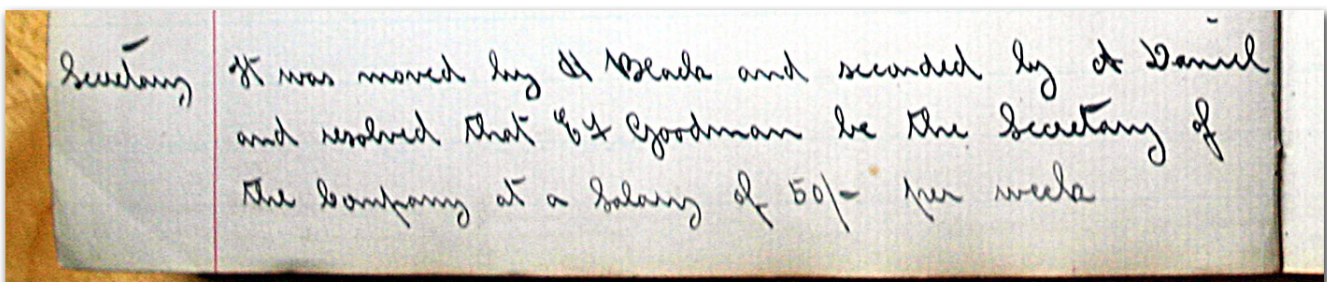 Secretary It was moved by H Black and seconded by A Daniel
and resolved that E F Goodman be the Secretary of
the Company at a Salary of 50/- per week